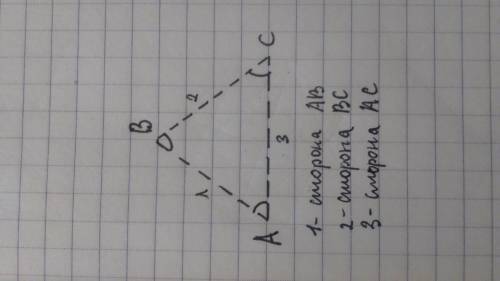 B
1
2
A
3
C
1 - сторона AB
2 - сторона BC
3 - сторона AC